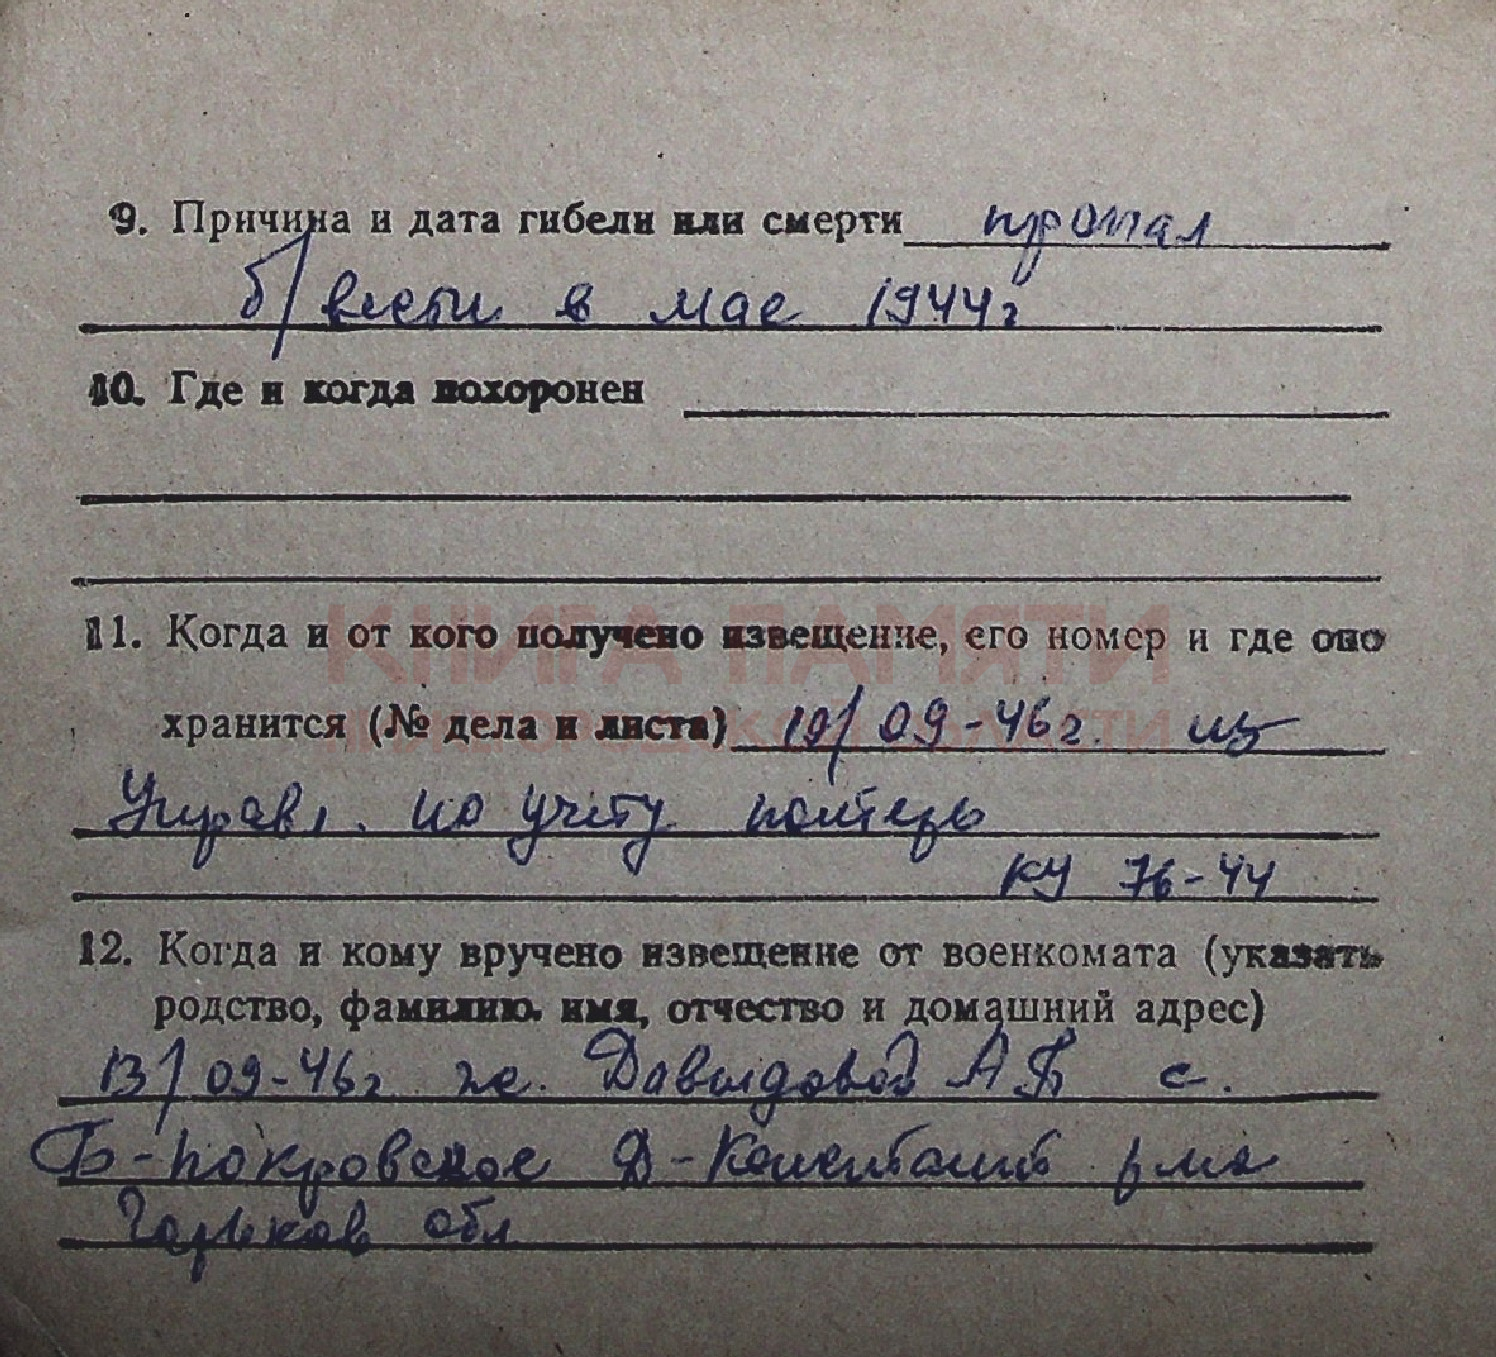 9. Причина и дата гибели или смерти пропал
б/ вести в мае 1944г
10. Где и когда похоронен
КНИГА ПАМЯТИ
11. Когда и от кого получено извещение, его номер и где оно
хранится (№ дела и листа) 10/ 09-46г. из
Управл. по учету потерь
КУ 76-44
12. Когда и кому вручено извещение от военкомата (указать
родство, фамилию. имя, отчество и домашний адрес)
13/ 09-46г же. Давыдовой А.П с.
Б-Покровское Д-Константи р-на
Горьков обл